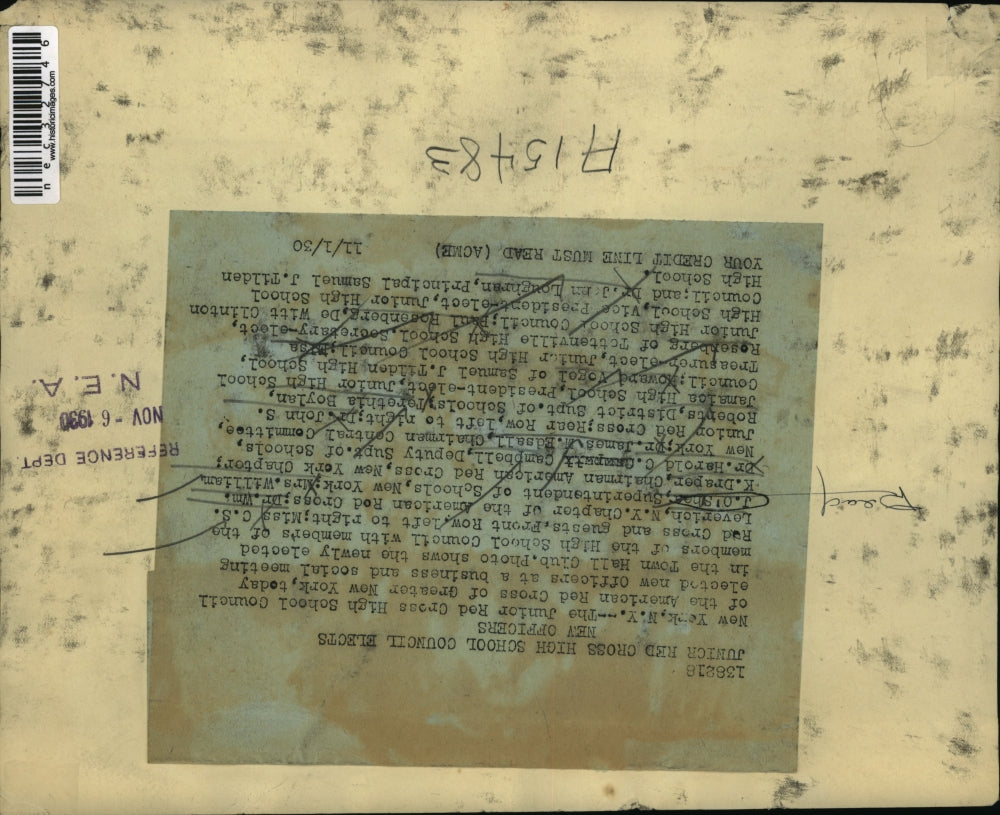 138218
JUNIOR RED CROSS HIGH SCHOOL COUNCIL ELECTS
NEW OFFICERS
New York,N.Y.--The Junior Red Cross High School Council
of the American Red Cross of Greater New York,today
elected new officers at a business and social meeting
in the Town Hall Club.Photo shows the newly elected
members of the High School Council with members of the
Red Cross and guests.Front Row,left to right;Miss C.S.
Leverich,N.Y.Chapter of the American Red Cross;Dr.Wm.
J.O'Shea,Superintendent of Schools,New York;Mrs.William
K.Draper,Chairman American Red Cross,New York Chapter;
Dr.Harold C.Campbell,Deputy Supt.of Schools,
New York;Dr.James M.Edsall,Chairman Central Committee,
Junior Red Cross;Rear Row,left to right;Dr.John S.
Roberts,District Supt.of Schools;Terethia Boylan,
Jamaica High School,President-elect,Junior High School
Council;Howard Vogel of Samuel J.Tilden High School,
Treasurer-elect,Junior High School Council;
Rosenberg of Tottenville High School.Secretary-elect,
Junior High School Council;Paul Rosenberg,De Witt Clinton
High School,Vice President-elect,Junior High School
Council;and Dr.J. Loughran,Principal Samuel J.Tilden
High School.
YOUR CREDIT LINE MUST READ (ACME) 11/1/30
A15483
REFERENCE DEPT.
NOV - 6 1930
N. E. A.
nec32746
www.historicimages.com